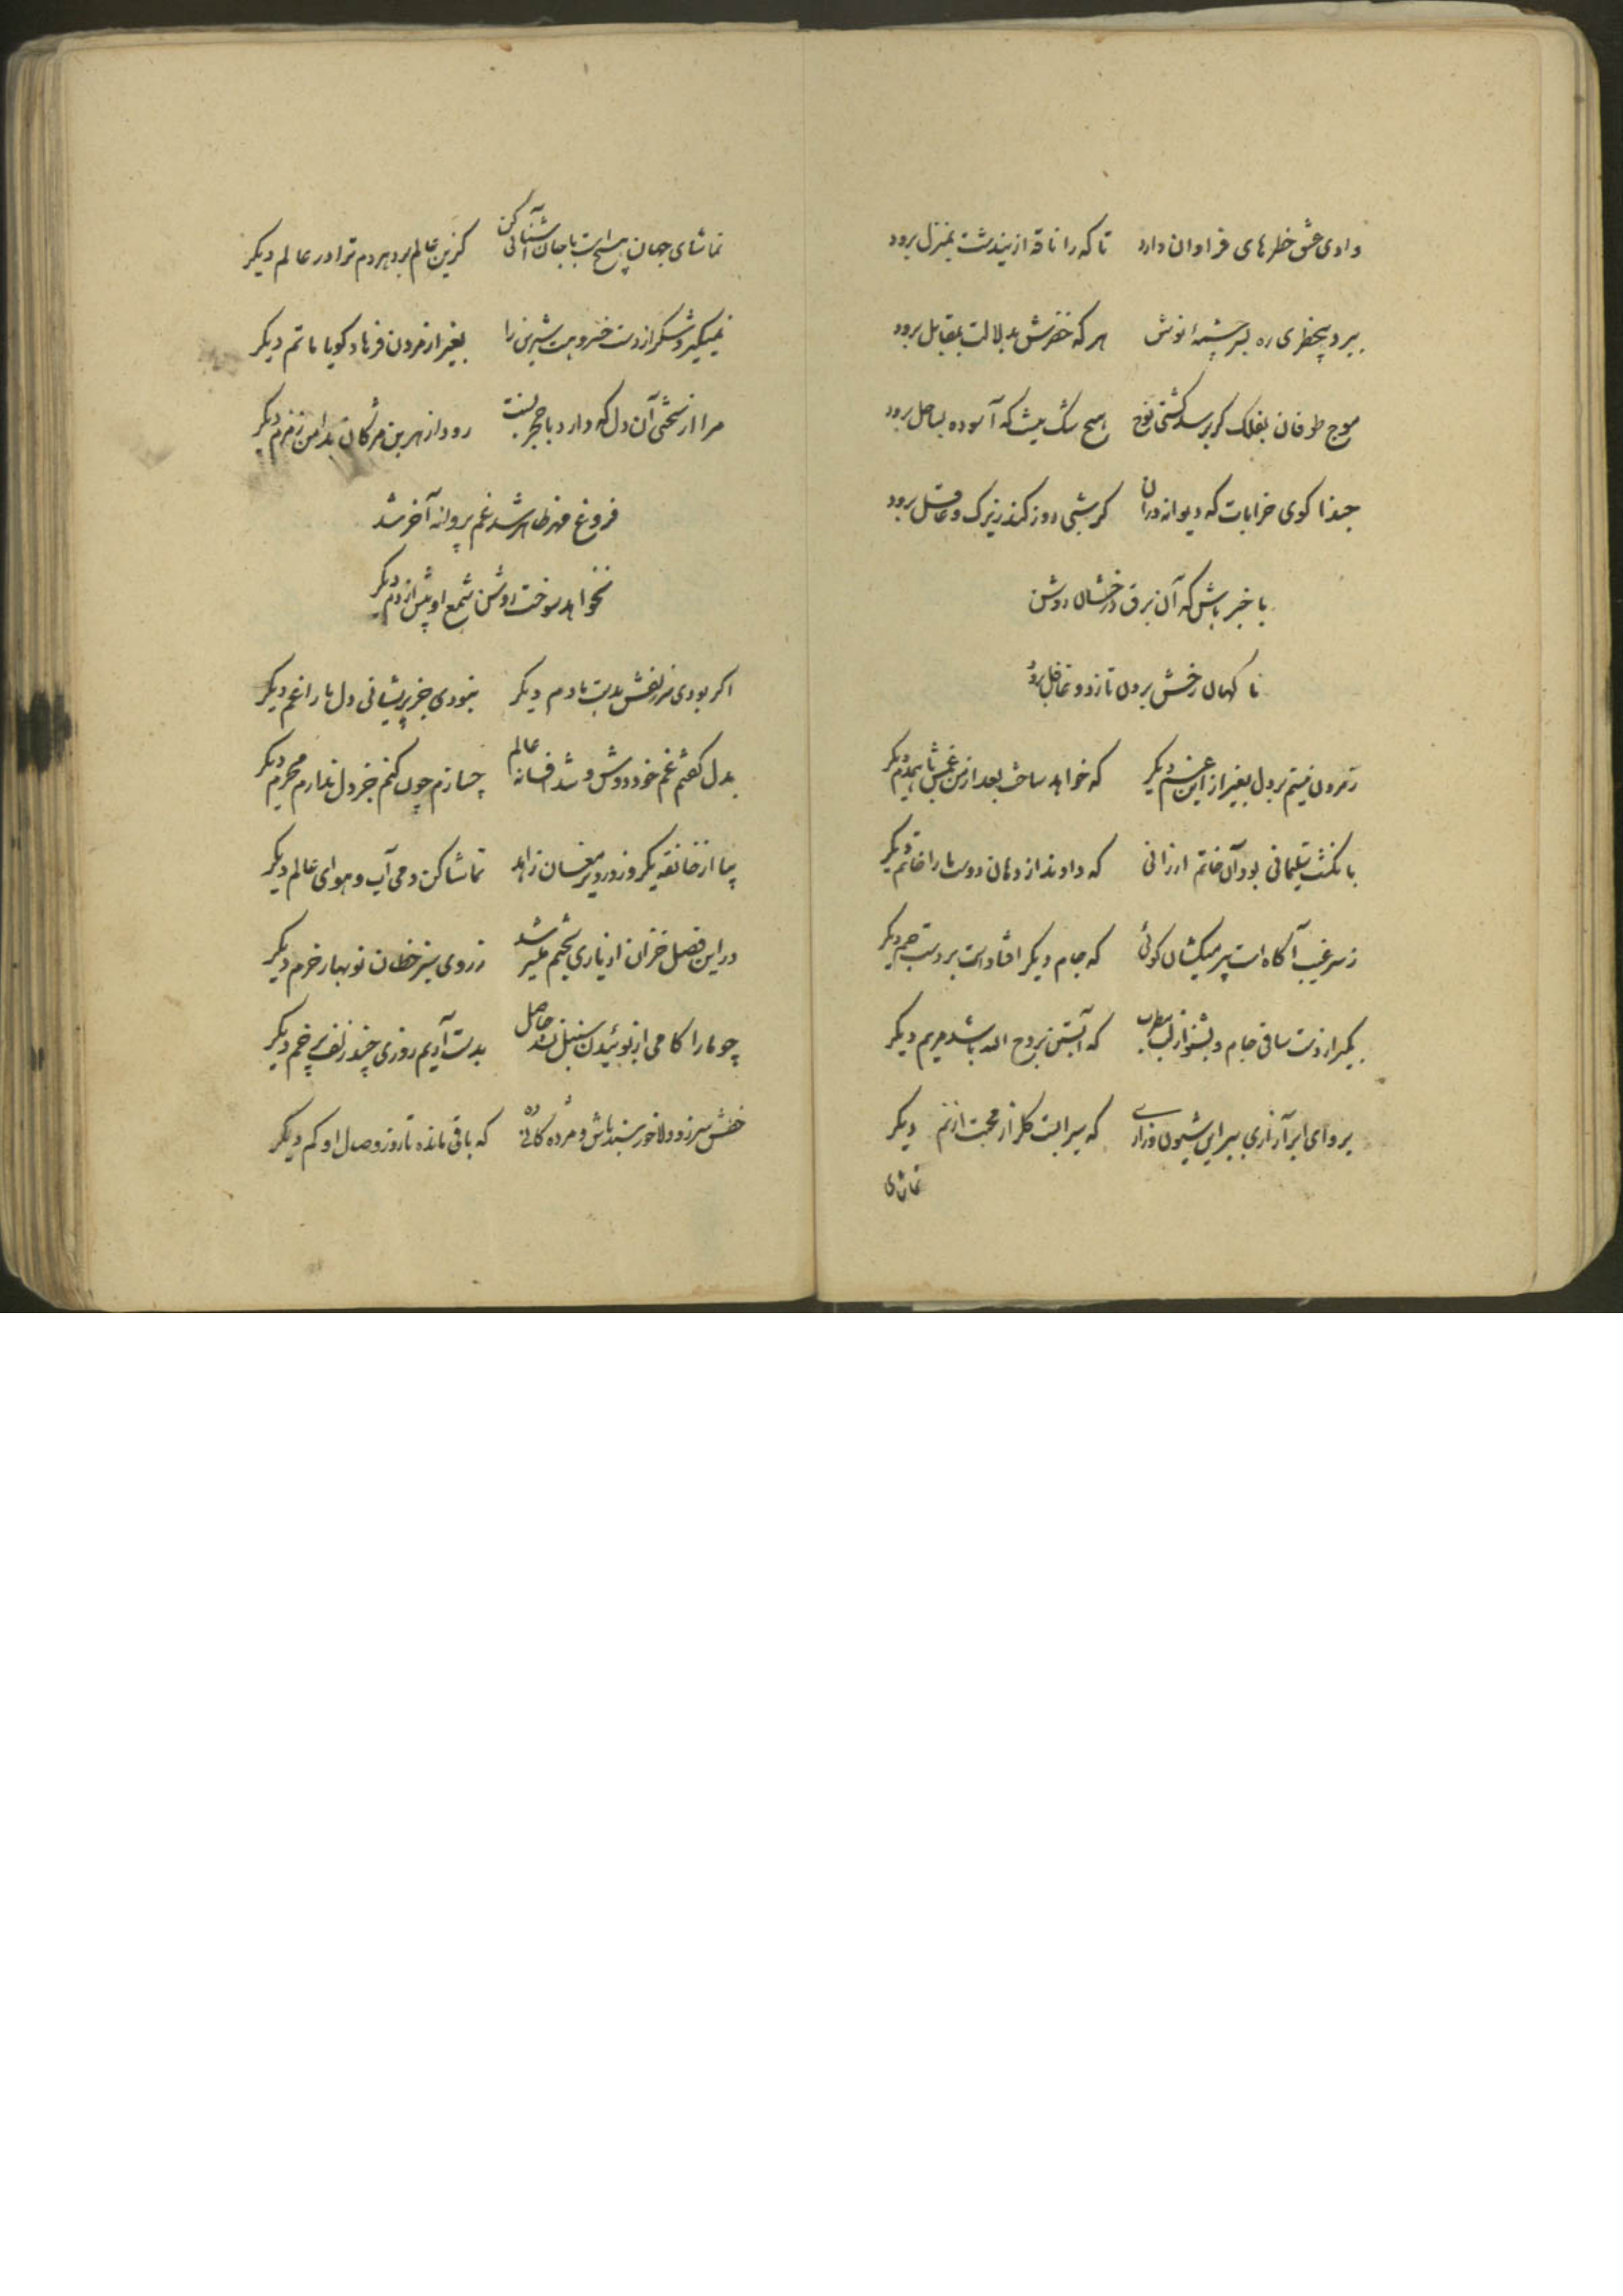 وادی عشق خطرهای فراوان دارد تا که را ناقه ازیندشت بمنزل برود
ببرد بیخطری ره بسر چشمه نوش هر که خضرش بدلالت بمقابل برود
موج طوفان بفلک کر برسد کشتی نوح هیچ شک نیست که آسوده بساحل برود
حبذا کوی خرابات که دیوانه دران کر شبی روز کند زیرک و عاقل برود
با خبر باش که آن برق درخشان روش
ناکهان رخش برون تازد و غافل برود
ز مردن نیستم بر دل بغیر از این غم دیکر که خواهد ساخت بعد از من غمش با همدم دیکر
بانکشت سلیمانی بود آن خاتم ارزانی که دادند از دهان دوست ما را خاتم دیکر
ز سر غیب آکاه است پیر میکشان کوئی که جام دیکر افتاد است بر دست جم دیکر
بکیر از دست ساقی جام و بشنو از لب مطرب که آبستن بروح الله باشد مریم دیکر
برو ای ابر آزاری ببر این شیون و زاری که سیرابست کلزار محبت از نم دیکر
تماشای
تماشای جهان هیچ است با جان آشنائی کن کزین عالم برد هردم ترا در عالم دیکر
نمیکیرد شکر از دست خسرو بت شیرین را بغیر از مردن فرهاد کویا ماتم دیکر
مرا از سختی آن دل که دارد با حجر نسبت رود از هر بن مژکان بدامن زمزم دیکر
فروغ مهر ظاهر شد غم پروانه آخر شد
نخواهد سوخت روشن شمع او بیش از دم دیکر
اکر بودی سر زلفش بدست مادم دیکر نبودی جز پریشانی دل ما را غم دیکر
بدل کفتم غم خود دوش و شد افسانه عالم چسازم چون کنم جز دل ندارم محرم دیکر
بیا از خانقه یکروز در دیر مغان زاهد تماشا کن دمی آب و هوای عالم دیکر
در این فصل خزان از یاری بختم میسر شد ز روی سبز خطان نوبهار خرم دیکر
چو ما را کامی از بوئیدن سنبل نشد حاصل بدست آریم روزی چند زلف پر خم دیکر
خطش سر زد دلا خورسند باش و مژده کانی ده که باقی مانده تا روز وصال او کم دیکر